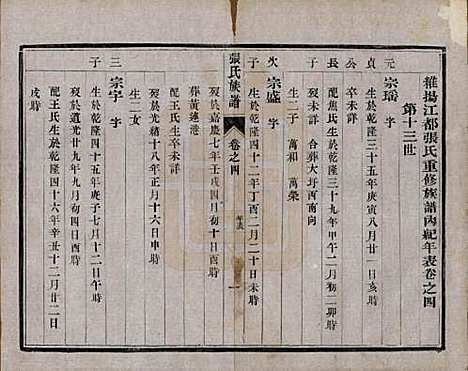 維揚江都張氏重修族譜內紀年表卷之四
第十三世
元貞公長子
宗瑤 字
生於乾隆三十五年庚寅八月廿一日亥時
卒未詳
配焦氏生於乾隆三十九年甲午二月初二卯時
歿未詳 合葬大圩西南向
生二子 萬和 萬榮
次子
宗盛 字
生於乾隆四十二年丁酉二月二十日未時
歿於嘉慶七年壬戌四月初十日
葬黃連港
張氏族譜
卷之四
一
配王氏生卒未詳
歿於光緒十八年正月十六日申時
生一女
三子
宗宇 字
生於乾隆四十五年庚子七月十二日時
歿於道光廿九年九月初四日酉時
配王氏生於乾隆四十六年辛丑十二月廿二日
戌時